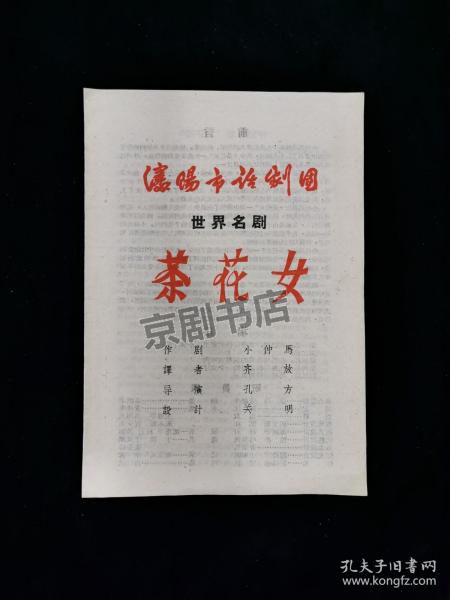 瀋陽市话劇团
世界名剧
茶花女
京剧书店
作剧 小仲馬
譯者 齐放
导演 孔方
設計 关明
孔夫子旧书网
www.kongfz.com